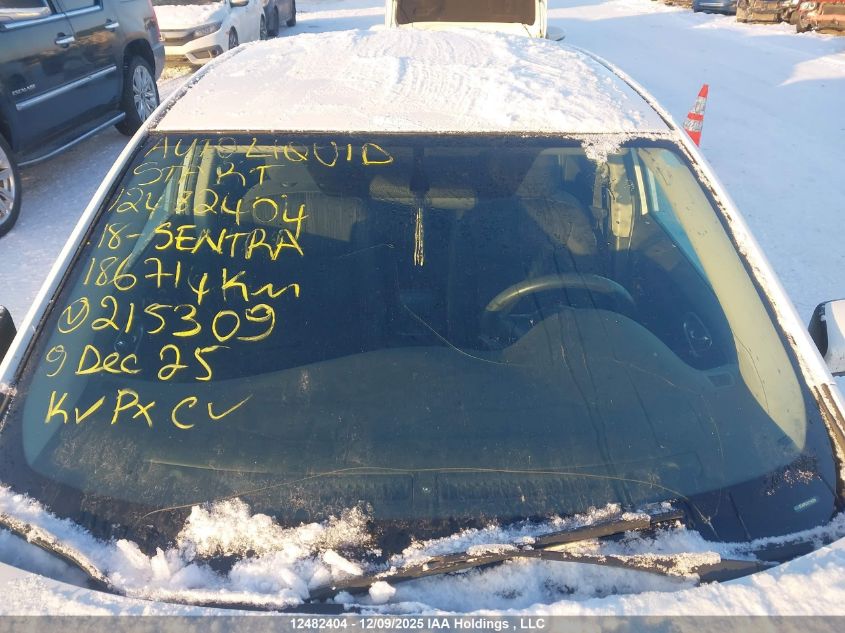 AUTO LIQUID
START
12482404
18-SENTRA
186714 Km
V 215309
9 Dec 25
K✓ PX C✓
12482404 - 12/09/2025 IAA Holdings , LLC